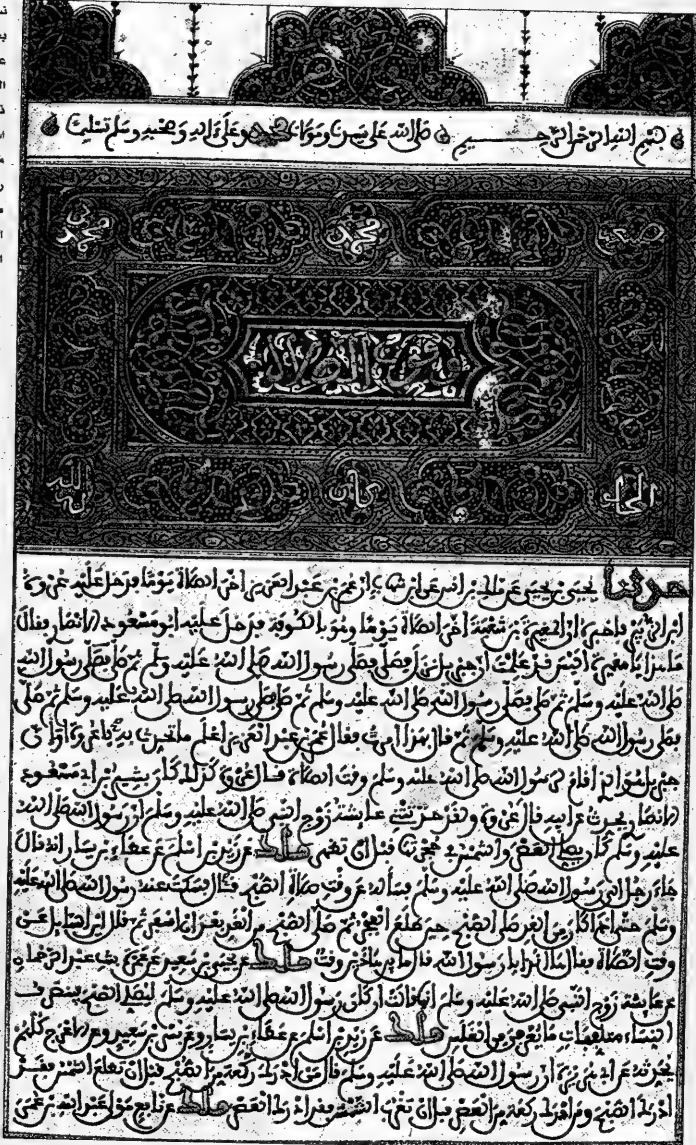 بسم الله الرحمن الرحيم صلى الله على سيدنا ومولانا محمد وعلى ءاله وصحبه وسلم تسليما
محمد
وقوت الصلاة
الحاج كان الله له
حدثنا يحيى بن يحيى عن ملك بن انس عن ابن شهاب ان عمر بن عبد العزيز اخر الصلاة يوما فدخل عليه عروة
ابن الزبير فاخبره ان المغيرة بن شعبة اخر الصلاة يوما وهو بالكوفة فدخل عليه ابو مسعود الانصاري فقال
ما هذا يا مغيرة اليس قد علمت ان جبريل نزل فصلى فصلى رسول الله صلى الله عليه وسلم ثم صلى فصلى رسول الله
صلى الله عليه وسلم ثم صلى فصلى رسول الله صلى الله عليه وسلم ثم صلى فصلى رسول الله صلى الله عليه وسلم ثم صلى
فصلى رسول الله صلى الله عليه وسلم ثم قال بهذا امرت فقال عمر بن عبد العزيز اعلم ما تحدث به يا عروة او ان
جبريل هو الذي اقام لرسول الله صلى الله عليه وسلم وقت الصلاة قال عروة كذلك كان بشير بن ابي مسعود
الانصاري يحدث عن ابيه قال عروة ولقد حدثتني عايشة زوج النبي صلى الله عليه وسلم ان رسول الله صلى الله
عليه وسلم كان يصلي العصر والشمس في حجرتها قبل ان تظهر ملك عن زيد بن اسلم عن عطاء بن يسار انه قال
جاء رجل الى رسول الله صلى الله عليه وسلم فسأله عن وقت صلاة الصبح قال فسكت عنه رسول الله صلى الله عليه
وسلم حتى اذا كان من الغد صلى الصبح حين طلع الفجر ثم صلى الصبح من الغد بعد ان اسفر ثم قال اين السايل عن
وقت الصلاة فقال هأنذا يا رسول الله قال ما بين هذين وقت ملك عن يحيى بن سعيد عن عمرة بنت عبد الرحمن
عن عايشة زوج النبي صلى الله عليه وسلم انها قالت ان كان رسول الله صلى الله عليه وسلم ليصلي الصبح فينصرف
النساء متلفعات ما يعرفن من الغلس ملك عن زيد بن اسلم عن عطاء بن يسار وعن بسر بن سعيد وعن الاعرج كلهم
يحدثه عن ابي هريرة ان رسول الله صلى الله عليه وسلم قال من ادرك ركعة من الصبح قبل ان تطلع الشمس فقد
ادرك الصبح ومن ادرك ركعة من العصر قبل ان تغرب الشمس فقد ادرك العصر ملك عن نافع مولى عبد الله بن عمر